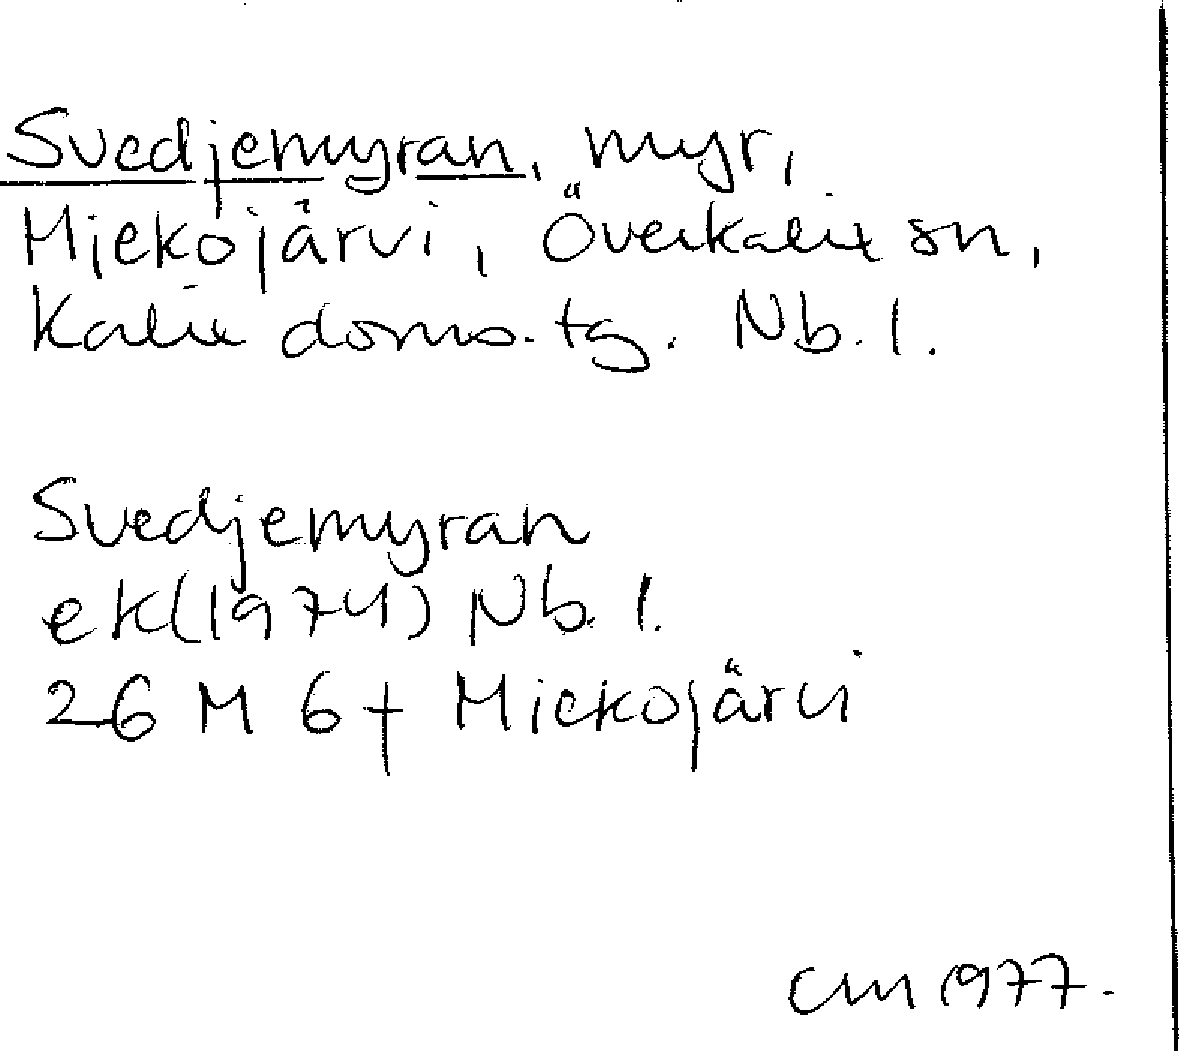 Svedjemyran, myr,
Miekojärvi, Överkalix sn,
Kalix doms. tg. Nb. l.
Svedjemyran
ek(1974) Nb. l.
26 M 6f Miekojärvi
CM 1977.